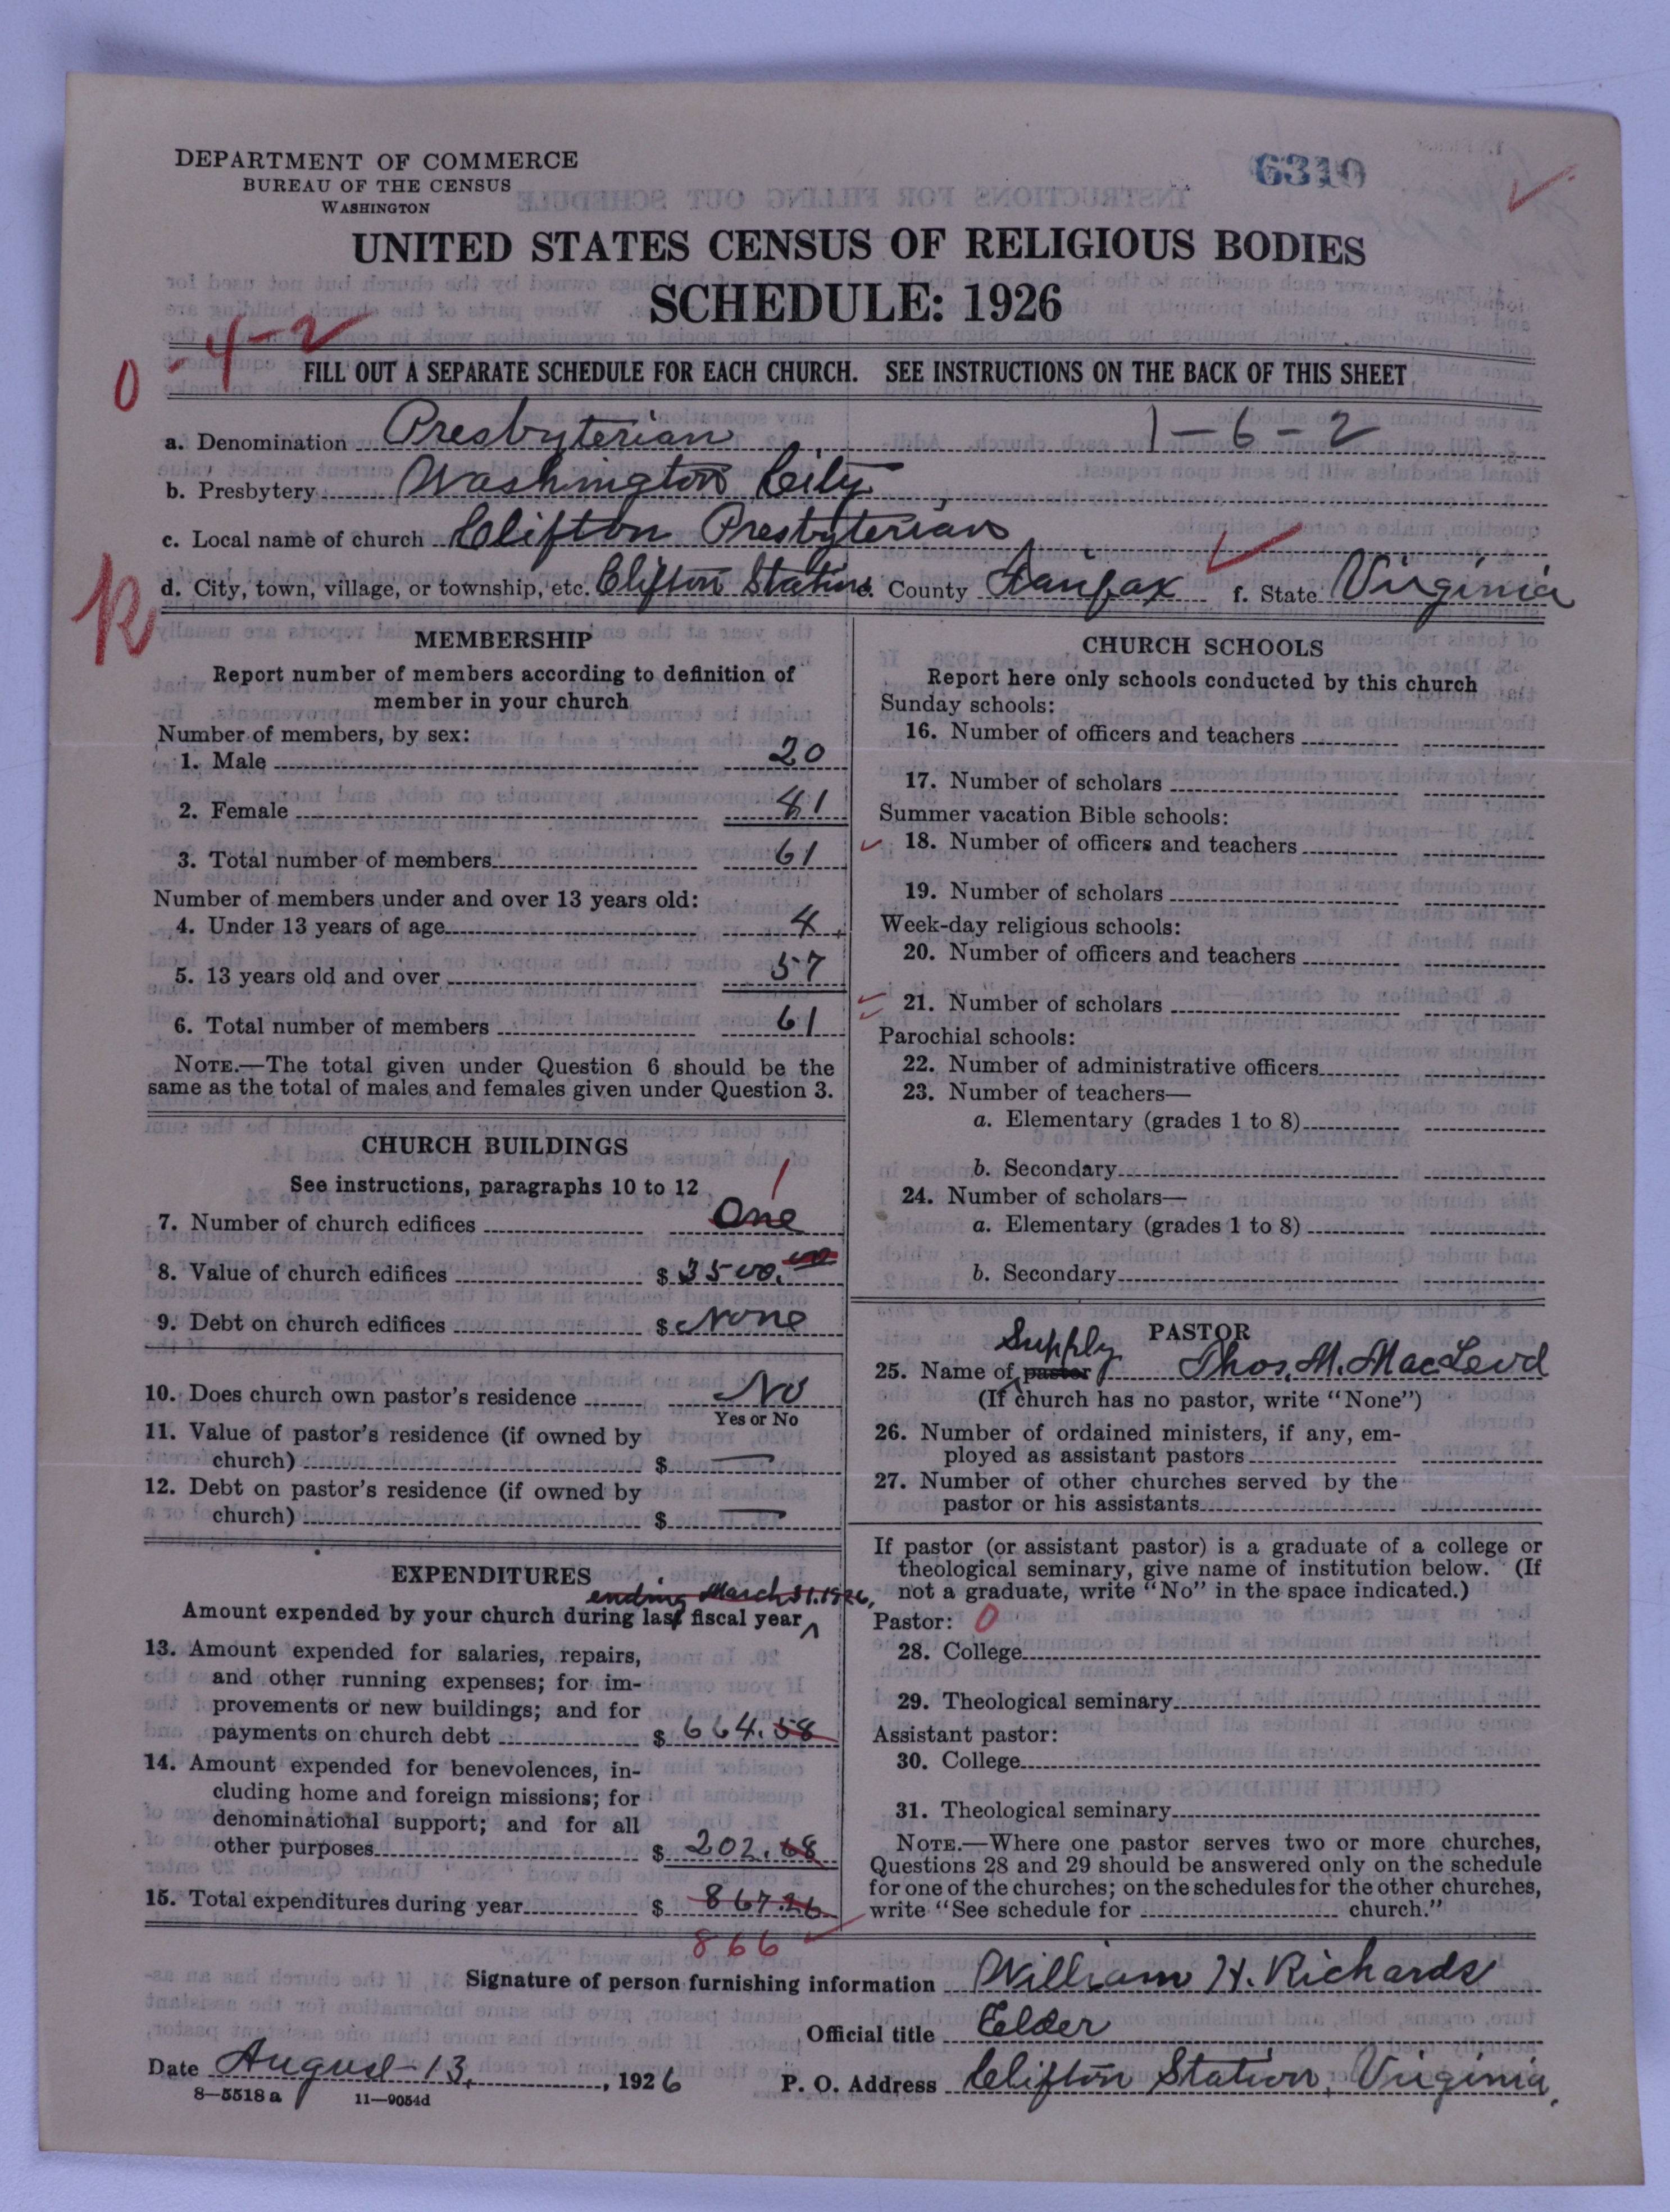 DEPARTMENT OF COMMERCE
BUREAU OF THE CENSUS
WASHINGTON
6310
UNITED STATES CENSUS OF RELIGIOUS BODIES
SCHEDULE: 1926
0-4-2
FILL OUT A SEPARATE SCHEDULE FOR EACH CHURCH. SEE INSTRUCTIONS ON THE BACK OF THIS SHEET
a. Denomination Presbyterian 1-6-2
b. Presbytery Washington City
c. Local name of church Clifton Presbyterian
d. City, town, village, or township, etc. Clifton Station e. County Fairfax f. State Virginia
R
MEMBERSHIP
Report number of members according to definition of
member in your church
Number of members, by sex:
1. Male 20
2. Female 41
3. Total number of members 61
Number of members under and over 13 years old:
4. Under 13 years of age 4
5. 13 years old and over 57
6. Total number of members 61
NOTE.—The total given under Question 6 should be the
same as the total of males and females given under Question 3.
CHURCH BUILDINGS
See instructions, paragraphs 10 to 12
1
7. Number of church edifices One
8. Value of church edifices $3500.00
9. Debt on church edifices $ None
10. Does church own pastor's residence No
Yes or No
11. Value of pastor's residence (if owned by
church) $ —
12. Debt on pastor's residence (if owned by
church) $ —
EXPENDITURES
ending March 31. 1926,
Amount expended by your church during last fiscal year
13. Amount expended for salaries, repairs,
and other running expenses; for im-
provements or new buildings; and for
payments on church debt $ 664.58
14. Amount expended for benevolences, in-
cluding home and foreign missions; for
denominational support; and for all
other purposes $ 202.68
15. Total expenditures during year $ 867.26
866
CHURCH SCHOOLS
Report here only schools conducted by this church
Sunday schools:
16. Number of officers and teachers
17. Number of scholars
Summer vacation Bible schools:
18. Number of officers and teachers
19. Number of scholars
Week-day religious schools:
20. Number of officers and teachers
21. Number of scholars
Parochial schools:
22. Number of administrative officers
23. Number of teachers—
a. Elementary (grades 1 to 8)
b. Secondary
24. Number of scholars—
a. Elementary (grades 1 to 8)
b. Secondary
PASTOR
Supply
25. Name of pastor Thos. M. MacLeod
(If church has no pastor, write "None")
26. Number of ordained ministers, if any, em-
ployed as assistant pastors
27. Number of other churches served by the
pastor or his assistants
If pastor (or assistant pastor) is a graduate of a college or
theological seminary, give name of institution below. (If
not a graduate, write "No" in the space indicated.)
Pastor: 0
28. College
29. Theological seminary
Assistant pastor:
30. College
31. Theological seminary
NOTE.—Where one pastor serves two or more churches,
Questions 28 and 29 should be answered only on the schedule
for one of the churches; on the schedules for the other churches,
write "See schedule for church."
Signature of person furnishing information William H. Richards
Official title Elder
Date August 13, 1926
P. O. Address Clifton Station, Virginia.
8—5518a 11—9054d